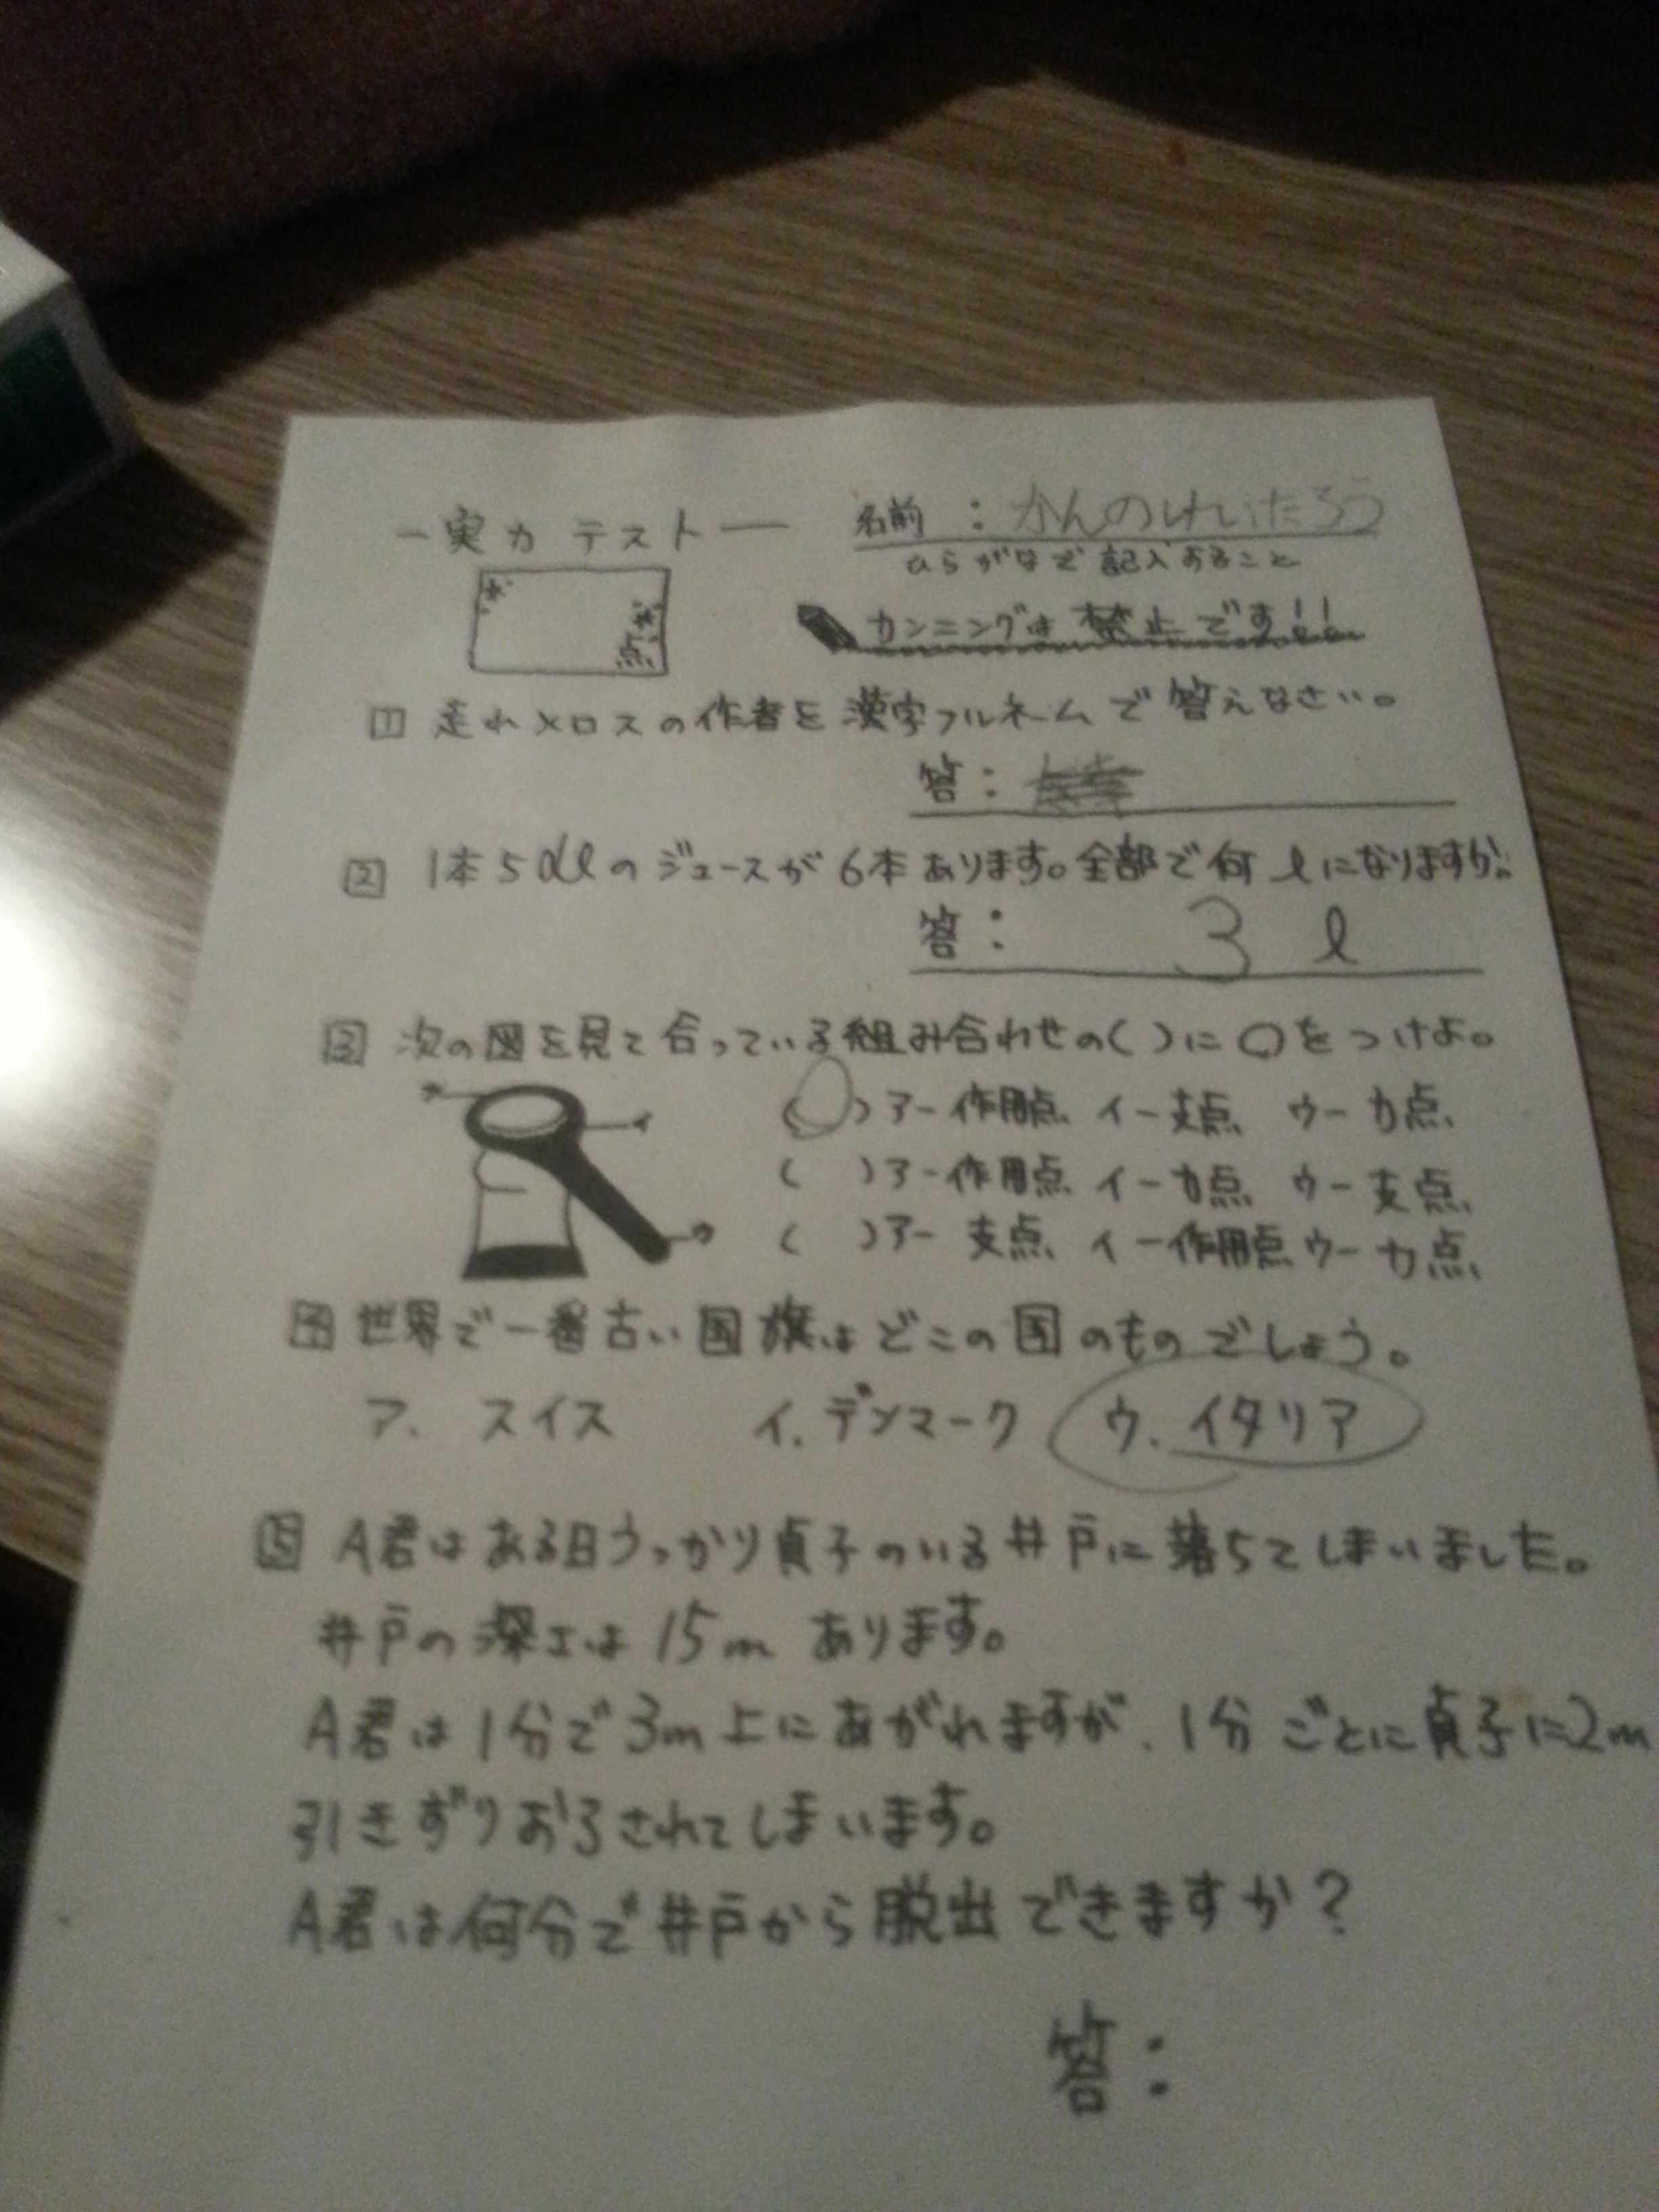 ー実力テストー
名前：かんのれいたろう
ひらがなで記入すること
点
カンニングは禁止です!!
1 走れメロスの作者を漢字フルネームで答えなさい。
答：
2 1本5dlのジュースが6本あります。全部で何lになりますか。
答： 3 l
3 次の図を見て合っている組み合わせの( )に○をつけよ。
ア
イ
ウ
(○)アー作用点 イー支点 ウー力点
( )アー作用点 イー力点 ウー支点
( )アー支点 イー作用点 ウー力点
4 世界で一番古い国旗はどこの国のものでしょう。
ア. スイス イ.デンマーク ウ.イタリア
5 A君はある日うっかり貞子のいる井戸に落ちてしまいました。
井戸の深さは15mあります。
A君は1分で3m上にあがれますが、1分ごとに貞子に2m
引きずりおろされてしまいます。
A君は何分で井戸から脱出できますか？
答：